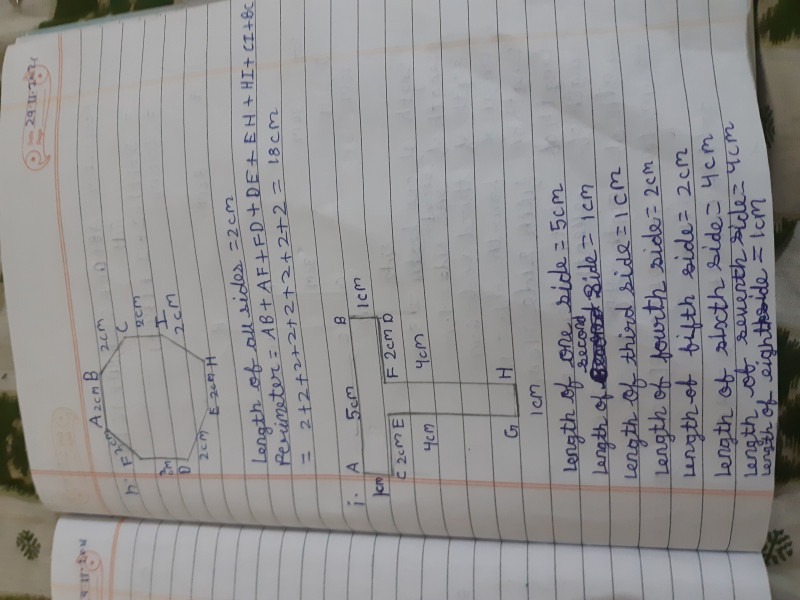 29.11.2021
h.
A 2cm B
2cm
C
2cm
I
2cm
H
E 2cm
2cm
D
2cm
F 2cm
Length of all sides = 2cm
Perimeter = AB + AF + FD + DE + EH + HI + CI + BC
= 2+2+2+2+2+2+2+2+2 = 18cm
i.
A 5cm B
1cm 1cm
C 2cm E F 2cm D
4cm 4cm
G H
1cm
Length of one side = 5cm
second
Length of side = 1cm
Length of third side = 1cm
Length of fourth side = 2cm
Length of fifth side = 2cm
Length of sixth side = 4cm
Length of seventh side = 4cm
Length of eighth side = 1cm